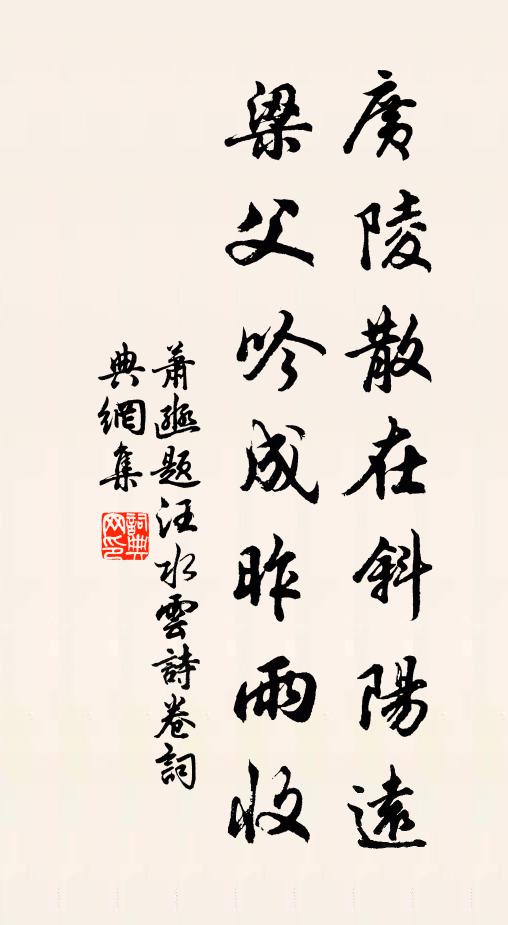 廣陵散在斜陽遠
梁父吟成昨雨收
蕭𤅬題汪水雲詩卷詞
典網集
詞典網印